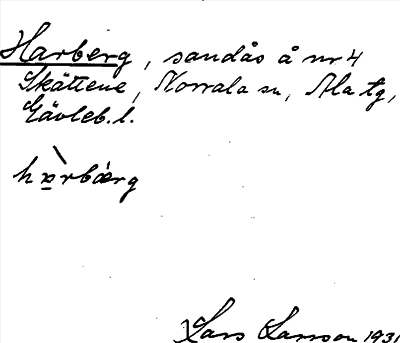 Harberg, sandås å nr 4
Skättene, Norrala sn, Ala tg,
Gävleb. l.
hàrbærg
Lars Larsson 1931